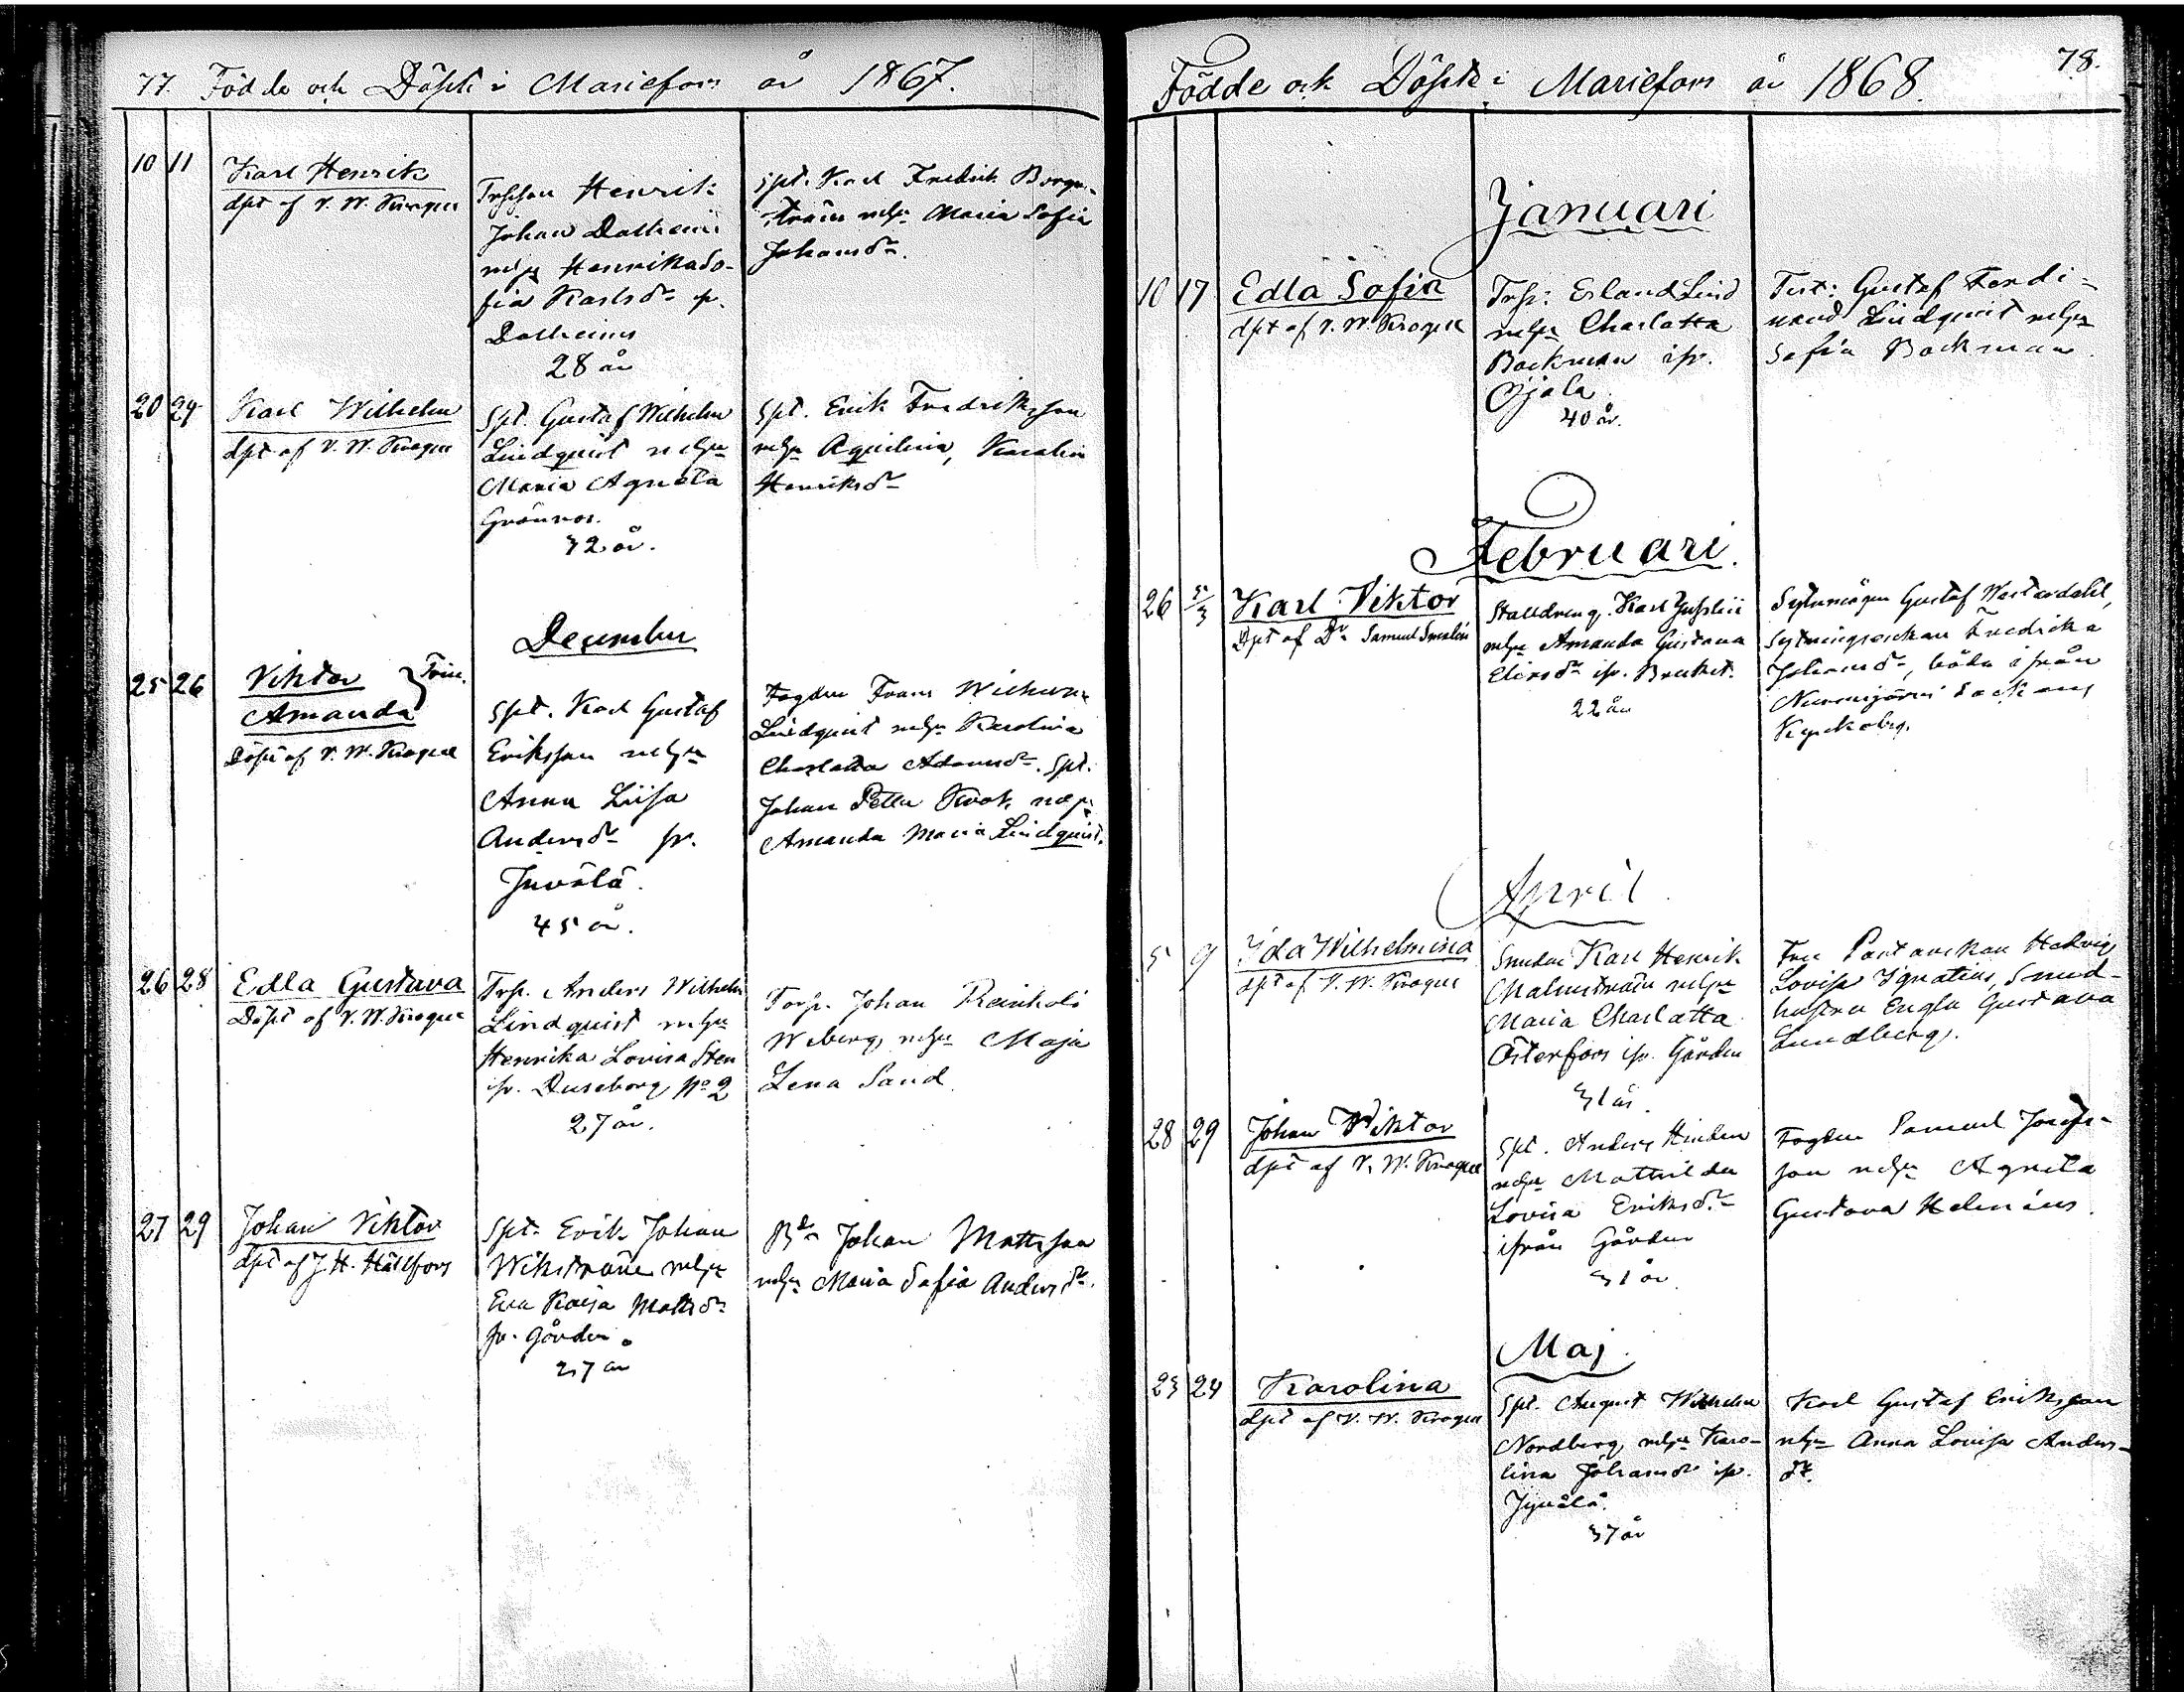 77. Födde och Döpte i Mariefors år 1867.
10 11 Karl Henrik
dpt af V. W. Kroger
Henrik
Johan
Henrika So-
fia Karlsdr
28 år
Spt. Karl Fredrik Borg-
ström Maria Sofia
Johansdr.
20 24 Karl Wilhelm
dpt af V. W.
Spt. Gustaf Wilhelm
Lindquist
Maria Agneta
Grönroos.
32 år.
Spt. Erik Fredriksson
Aquilina, Karolin
Henriksdr
December
25 26 Viktor
Amanda
Döpt af V. W.
Spt. Karl Gustaf
Eriksson
Anna Liisa
Andersdr fr.
45 år.
Fogden Frans Wilhelm
Lindquist Karolina
Charlotta Adamsdr. Spt.
Johan Petter
Amanda Maria Lindquist.
26 28 Edla Gustava
Döpt af V. W.
Trp. Anders Wilhelm
Lindquist
Henrika Lovisa Sten
ifr. Duseborg No 2
27 år.
Torp. Johan Reinhold
Weberg Maja
Lena Sand
27 29 Johan Viktor
dpt af J. H. Hällfors
Spt. Erik Johan
Wikström
Eva Kaisa Mattsdr
fr. Gården.
27 år
Johan Mattsson
Maria Sofia Andersdr.
Födde och Döpte i Mariefors år 1868. 78.
Januari
10 17 Edla Sofia
dpt af V. W.
Trp: Erland Lind
Charlotta
Backman ifr.
Ojala
40 år.
Test: Gustaf Ferdi-
nand Lindquist
Sofia Backman.
Februari.
26 5/3 Karl Viktor
Dpt af Dr Samuel
Stalldreng. Karl
Amanda Gustava
Eliasdr ifr. Bruket.
22 år
Gustaf Westerdahl,
Fredrika
Johansdr, båda ifrån
Nurmijärvi Socken
April
5 9 Ida Wilhelmina
dpt af V. W.
Smeden Karl Henrik
Malmström
Maria Charlotta
Österfors ifr. Gården
31 år.
Hedvig
Lovisa Ignatius, Smed-
hustru Engla Gustava
Lundberg.
28 29 Johan Viktor
dpt af V. W.
Spt. Anders
Mathilda
Lovisa Eriksdr
ifrån Gården
31 år.
Fogden Samuel Josefs-
son Agneta
Gustava Helenius.
Maj.
23 24 Karolina
dpt af V. W.
Spt. August Wilhelm
Nordberg, Karo-
lina Johansdr ifr.
37 år
Karl Gustaf Eriksson
Anna Lovisa Anders-
dr.